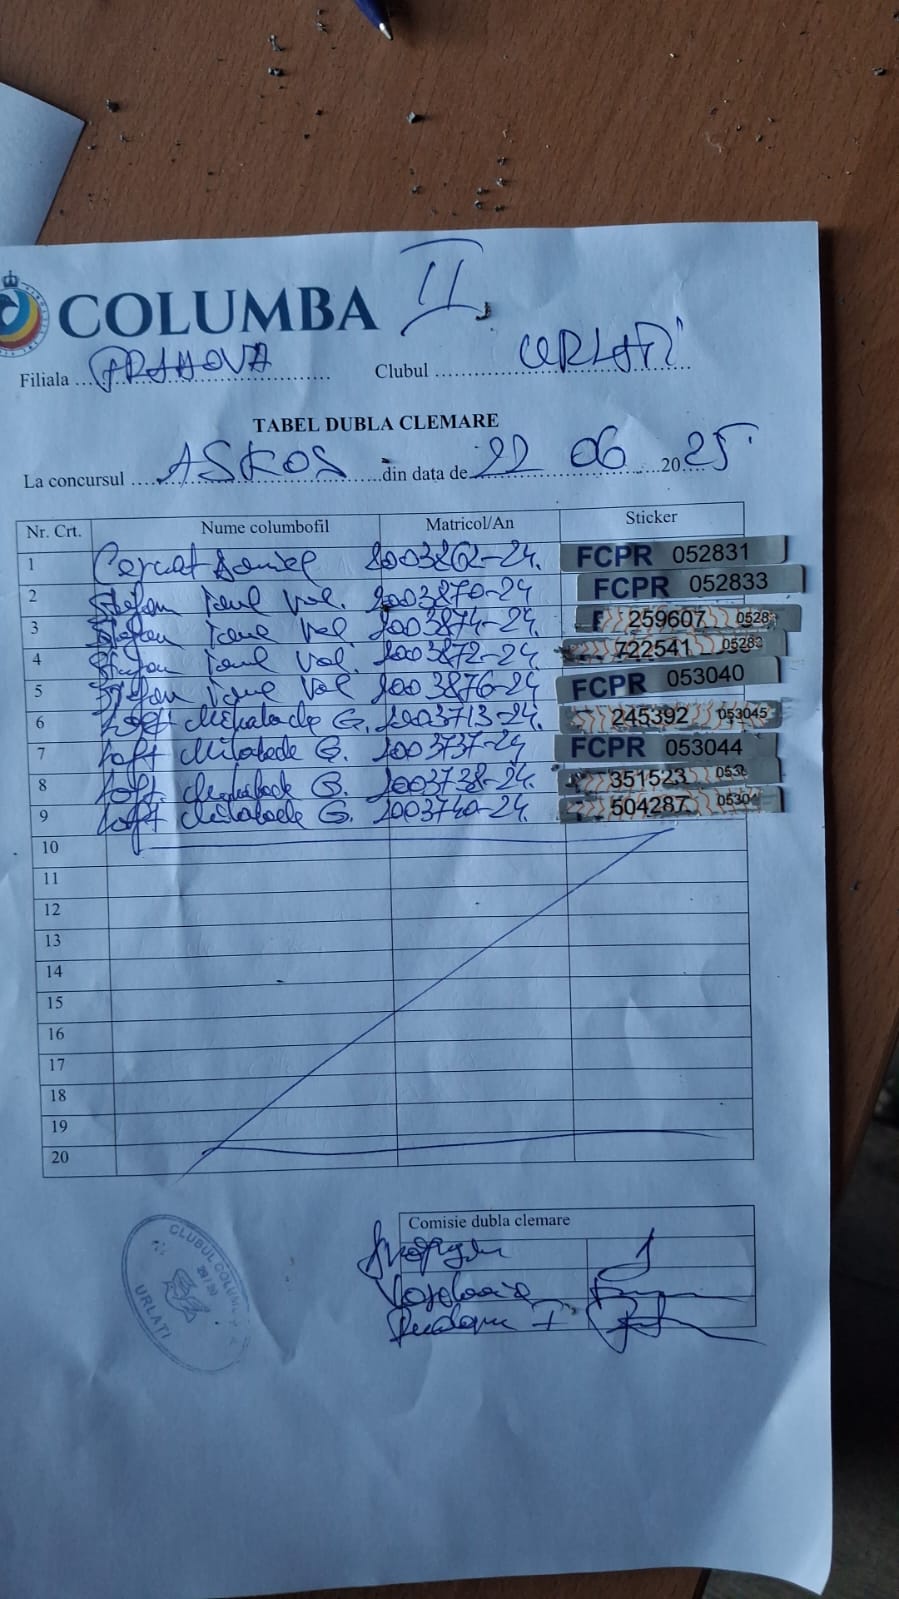 COLUMBA II
Filiala PRAHOVA Clubul URLATI
TABEL DUBLA CLEMARE
La concursul ASKOS din data de 22 06 2025
Nr. Crt. Nume columbofil Matricol/An Sticker
1 Cercat Daniel 2003862-24. FCPR 052831
2 Stefan Ionel Val. 2003870-24. FCPR 052833
3 Stefan Ionel Val 2003874-24. 259607
4 Stefan Ionel Val. 2003872-24. 722541
5 Stefan Ionel Val 2003876-24 FCPR 053040
6 Loft G. 2003713-24. 245392 053045
7 Loft G. 2003737-24 FCPR 053044
8 Loft G. 2003738-24. 351523
9 Loft G. 2003740-24. 504287
10
11
12
13
14
15
16
17
18
19
20
Comisie dubla clemare
CLUBUL
URLATI